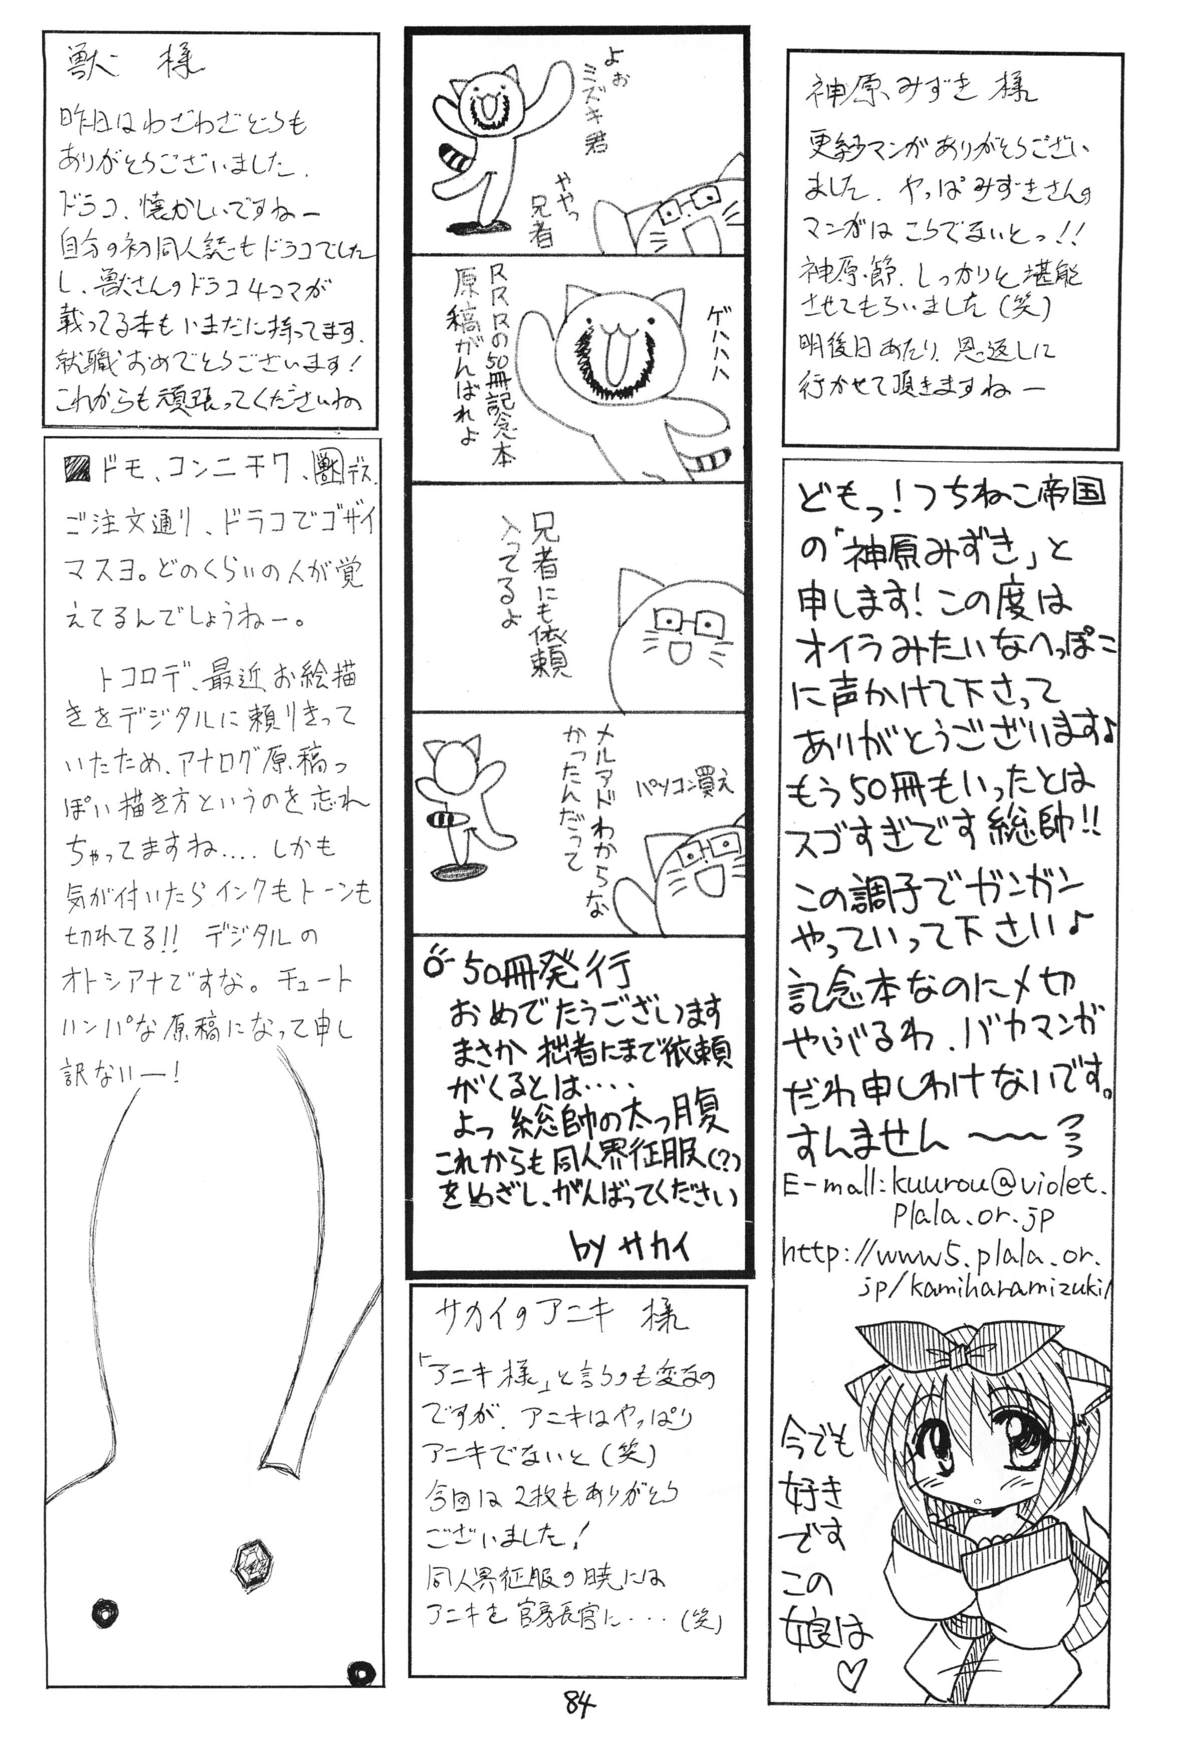 獣 様
昨日はわざわざどうも
ありがとうございました.
ドラコ、懐かしいですねー
自分の初同人誌もドラコでした
し、獣さんのドラコ4コマが
載ってる本もいまだに持ってます.
就職おめでとうございます!
これからも頑張ってくださいね
■ドモ、コンニチワ、獣デス.
ご注文通り、ドラコでゴザイ
マスヨ。どのくらいの人が覚
えてるんでしょうねー。
トコロデ、最近お絵描
きをデジタルに頼りきって
いたため、アナログ原稿っ
ぽい描き方というのを忘れ
ちゃってますね.... しかも
気が付いたらインクもトーンも
切れてる!! デジタルの
オトシアナですな。チュート
ハンパな原稿になって申し
訳ないー!
よぉ
ミズキ君
ややっ
兄者
ゲハハハ
RRRの50冊記念本
原稿がんばれよ
兄者にも依頼
入ってるよ
メルアドわからな
かったんだって
パソコン買え
50冊発行
おめでたうございます
まさか 拙者にまで依頼
がくるとは‥‥
よっ 総帥の太っ腹
これからも同人界征服(?)
をめざし、がんばってください
by サカイ
サカイのアニキ 様
「アニキ様」と言うのも変なの
ですが、アニキはやっぱり
アニキでないと(笑)
今回は2枚もありがとう
ございました!
同人界征服の暁には
アニキを官房長官に・・・(笑)
神原みずき 様
更紗マンガありがとうござい
ました. やっぱみずきさんの
マンガはこうでないとっ!!
神原節、しっかりと堪能
させてもらいました(笑)
明後日あたり、恩返しに
行かせて頂きますねー
どもっ!つちねこ帝国
の「神原みずき」と
申します!この度は
オイラみたいなへっぽこ
に声かけて下さって
ありがとうございます♪
もう50冊もいったとは
スゴすぎです総帥!!
この調子でガンガン
やっていって下さい♪
記念本なのに〆切
やぶるわ、バカマンガ
だわ申しわけないです。
すんません〜〜
E-mall:kuurou@violet.
plala.or.jp
http://www5.plala.or.
jp/kamiharamizuki/
今でも
好き
です
この
娘は
♡
84